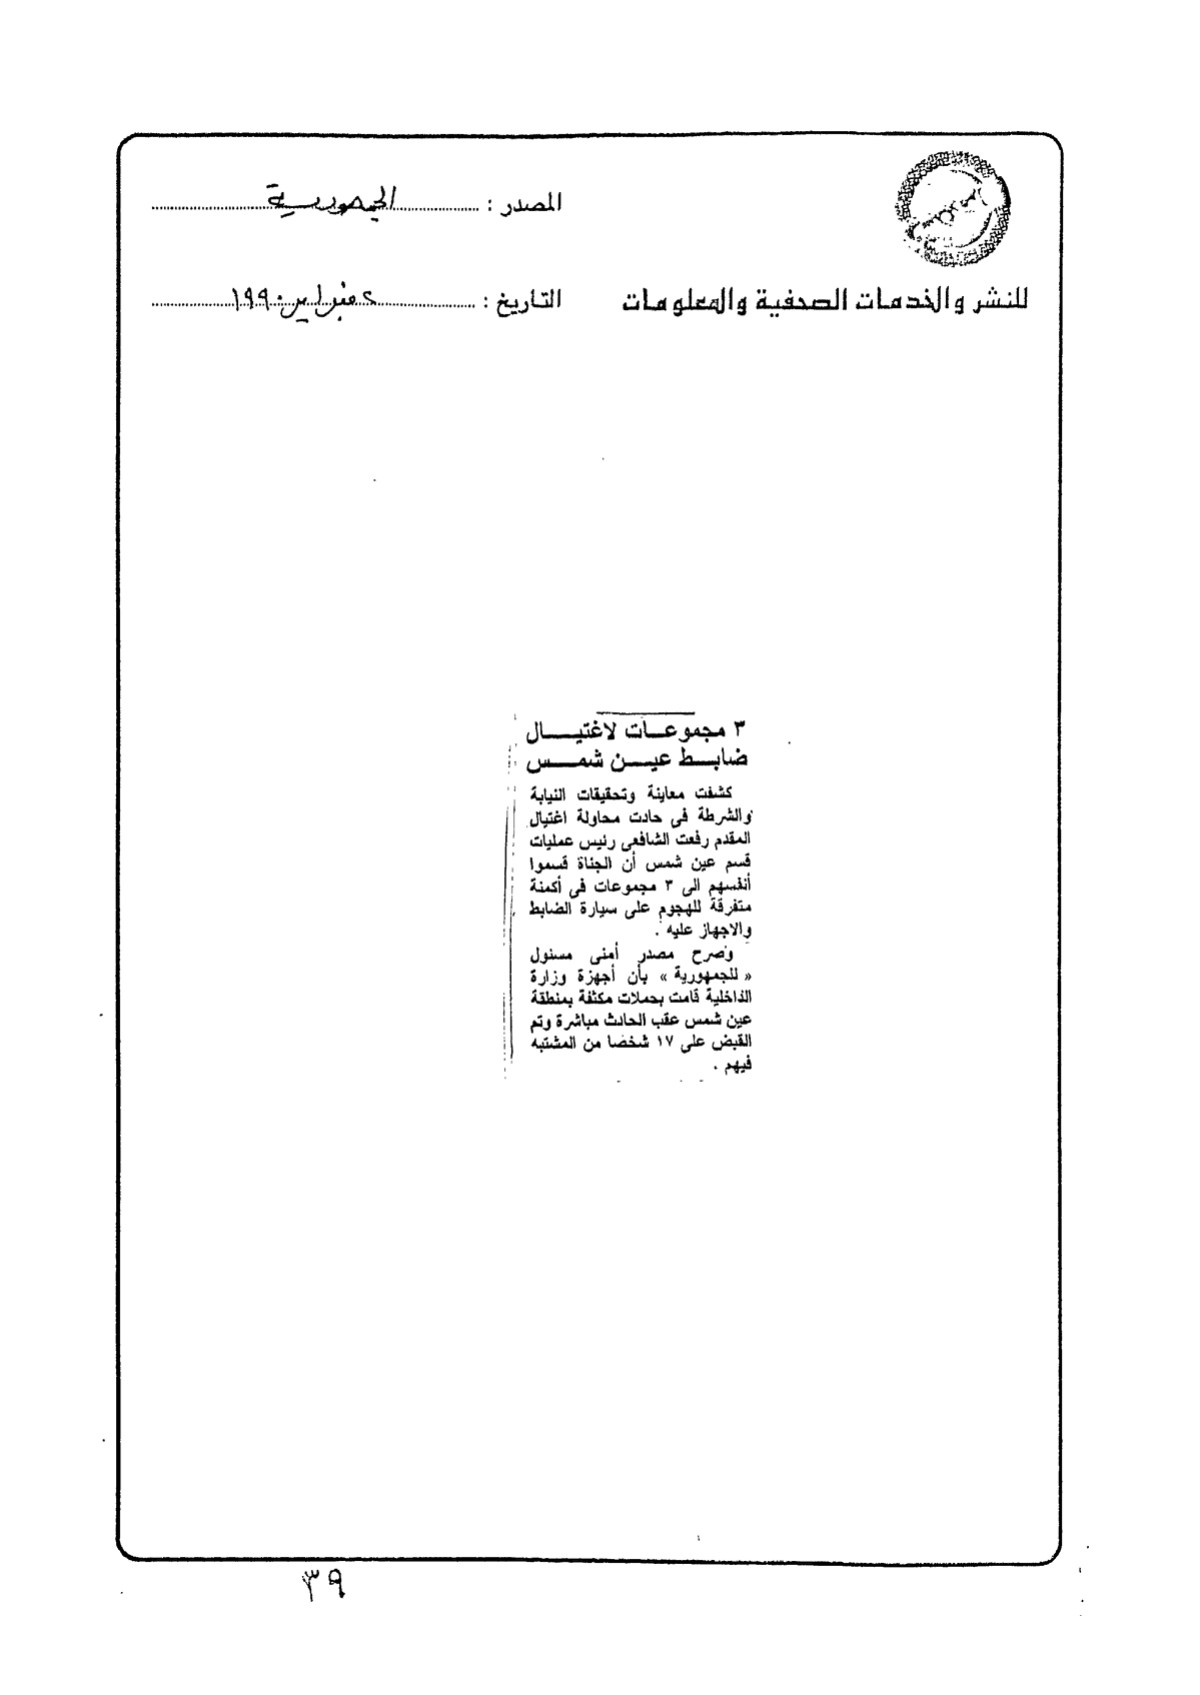 المصدر : الجمهورية
للنشر والخدمات الصحفية والمعلومات
التاريخ : ٢ فبراير ١٩٩٠
٣ مجموعات لاغتيال
ضابط عين شمس
كشفت معاينة وتحقيقات النيابة
والشرطة فى حادث محاولة اغتيال
المقدم رفعت الشافعى رئيس عمليات
قسم عين شمس أن الجناة قسموا
أنفسهم الى ٣ مجموعات فى أكمنة
متفرقة للهجوم على سيارة الضابط
والاجهاز عليه .
وصرح مصدر أمنى مسئول
« للجمهورية » بأن أجهزة وزارة
الداخلية قامت بحملات مكثفة بمنطقة
عين شمس عقب الحادث مباشرة وتم
القبض على ١٧ شخصا من المشتبه
فيهم .
٣٩